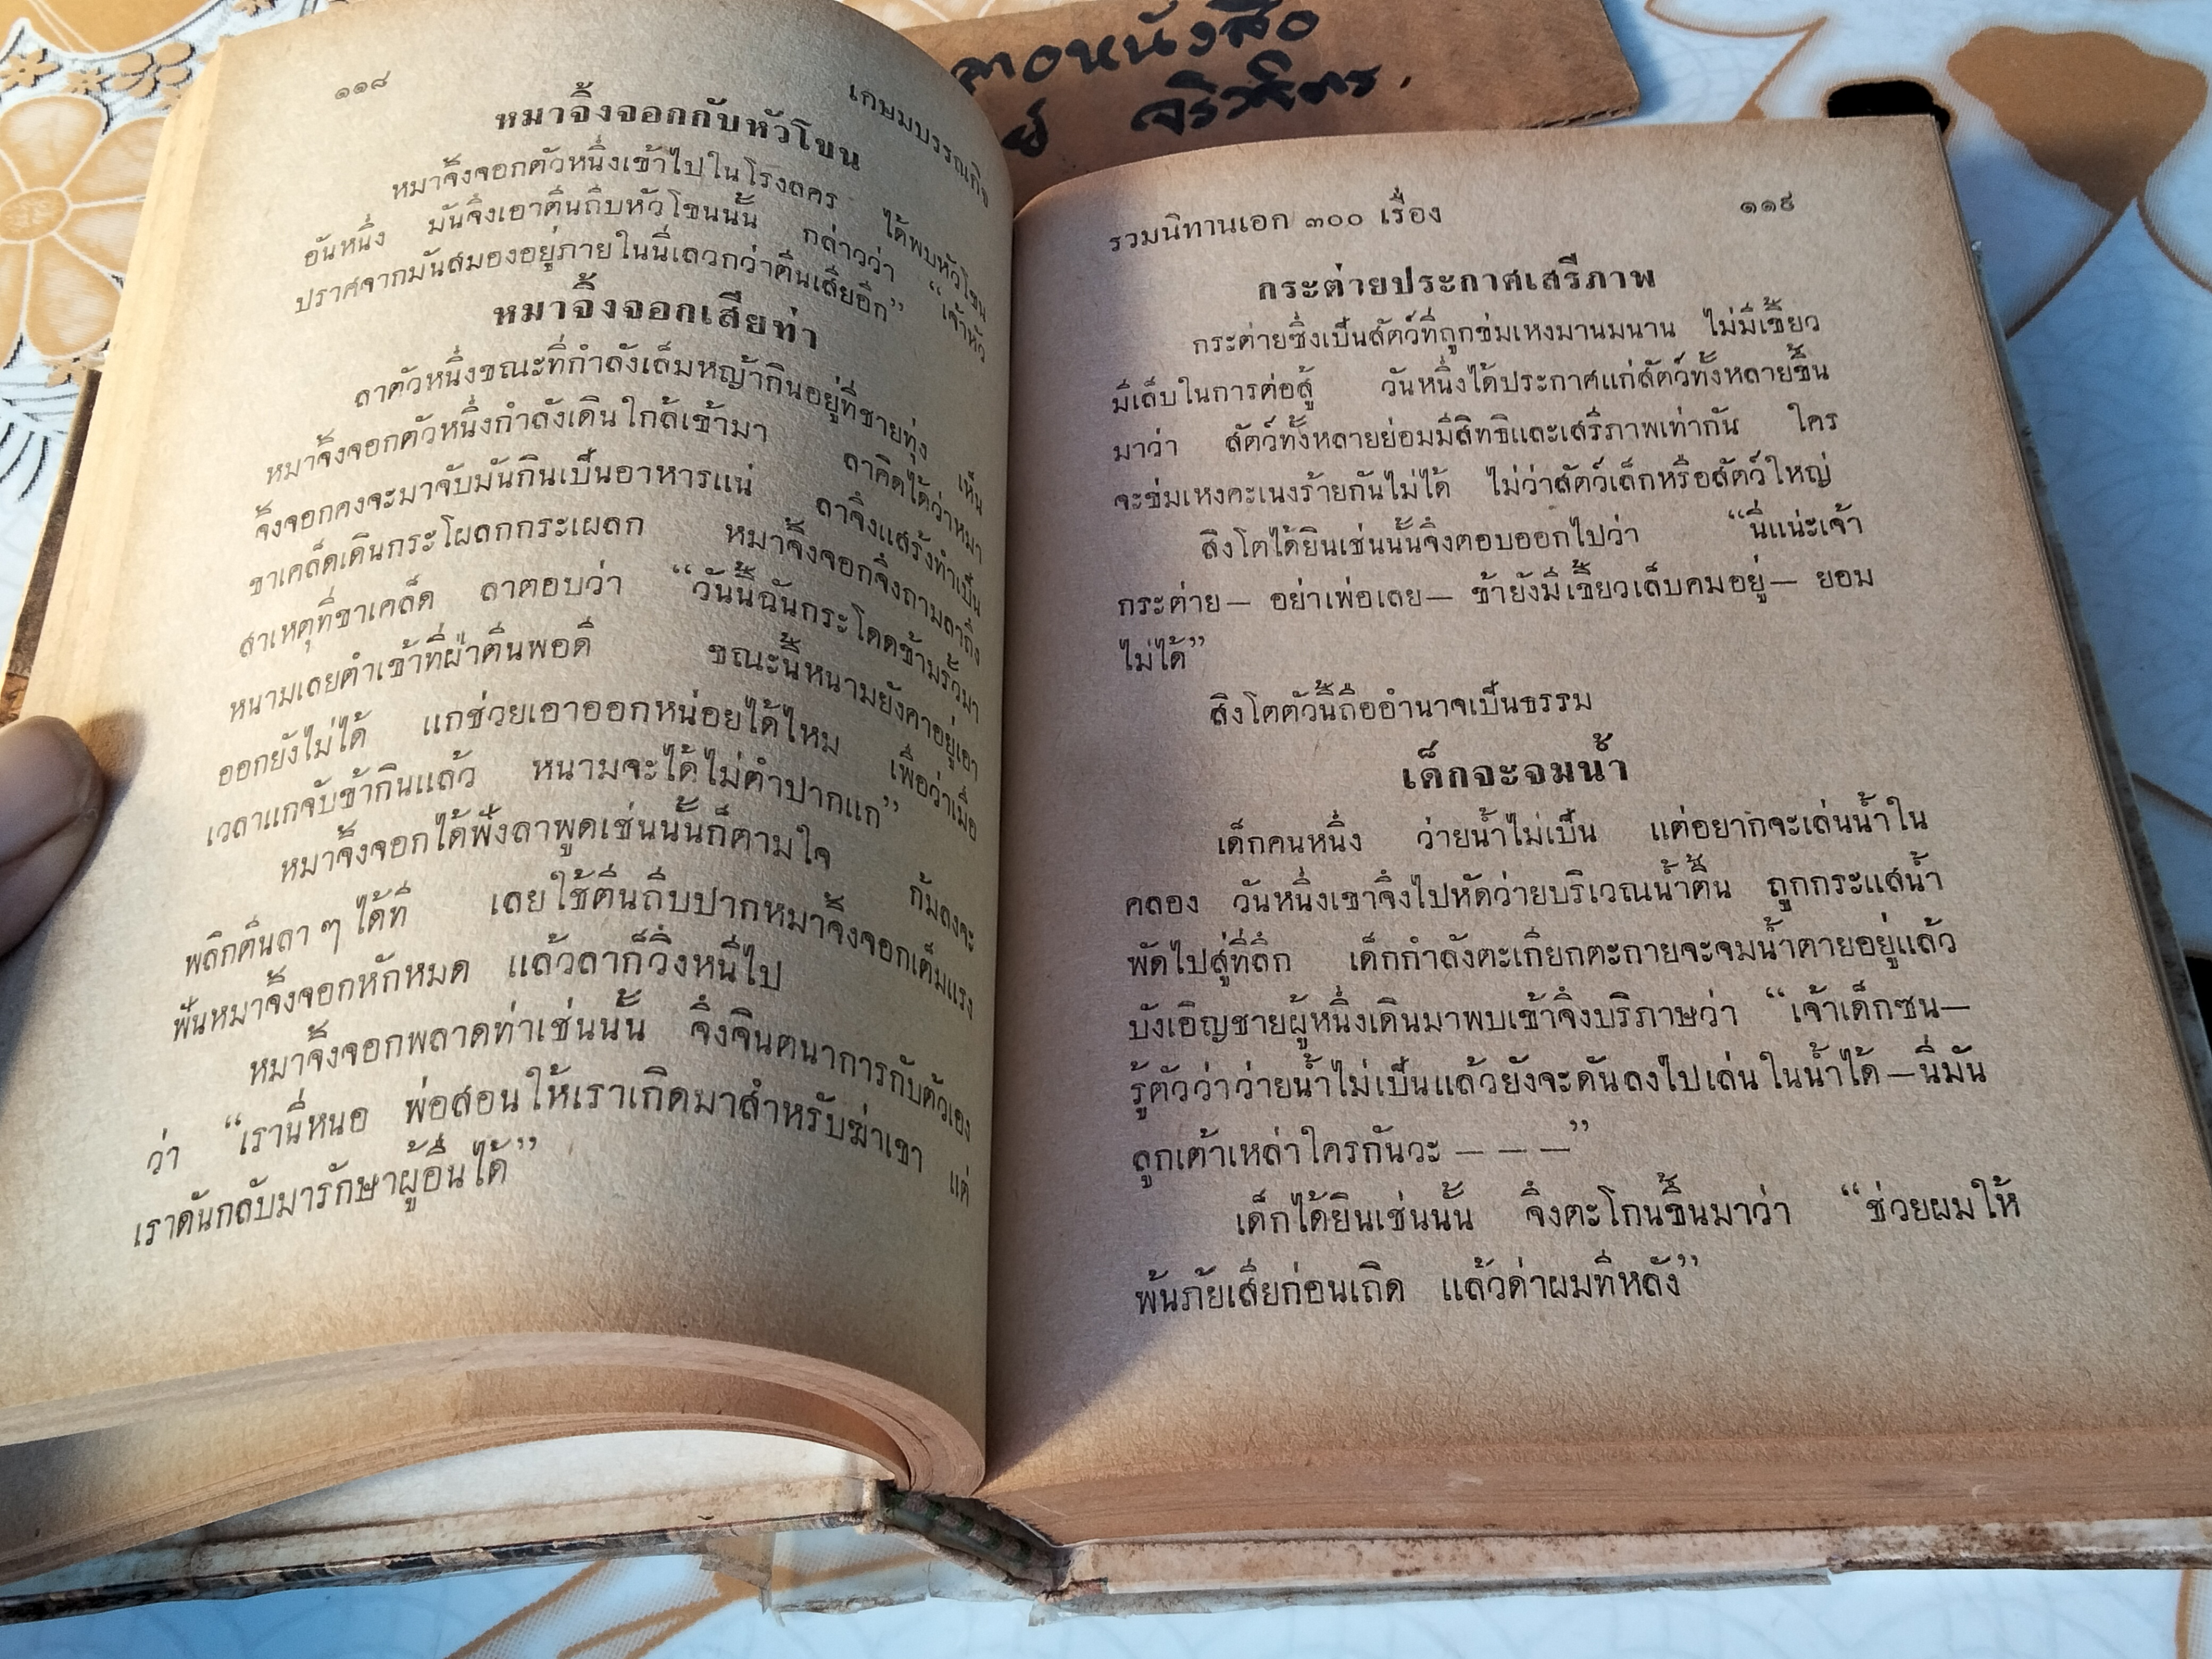 ๑๑๘ เกษมบรรณกิจ
หมาจิ้งจอกกับหัวโขน
หมาจิ้งจอกตัวหนึ่งเข้าไปในโรงละคร ได้พบหัวโขน
อันหนึ่ง มันจึงเอาตีนถีบหัวโขนนั้น กล่าวว่า “เจ้าหัว
ปราศจากมันสมองอยู่ภายในนี่เลวกว่าตีนเสียอีก”
หมาจิ้งจอกเสียท่า
ลาตัวหนึ่งขณะที่กำลังเล็มหญ้ากินอยู่ที่ชายทุ่ง เห็น
หมาจิ้งจอกตัวหนึ่งกำลังเดินใกล้เข้ามา ลาคิดได้ว่าหมา
จิ้งจอกคงจะมาจับมันกินเป็นอาหารแน่ ลาจึงแสร้งทำเป็น
ขาเคล็ดเดินกระโผลกกระเผลก หมาจิ้งจอกจึงถามลาถึง
สาเหตุที่ขาเคล็ด ลาตอบว่า “วันนี้ฉันกระโดดข้ามรั้วมา
หนามเลยตำเข้าที่ผ่าตีนพอดี ขณะนี้หนามยังคาอยู่เอา
ออกยังไม่ได้ แกช่วยเอาออกหน่อยได้ไหม เพื่อว่าเมื่อ
เวลาแกจับข้ากินแล้ว หนามจะได้ไม่ตำปากแก”
หมาจิ้งจอกได้ฟังลาพูดเช่นนั้นก็ตามใจ ก้มลงจะ
พลิกตีนลา ๆ ได้ที เลยใช้ตีนถีบปากหมาจิ้งจอกเต็มแรง
ฟันหมาจิ้งจอกหักหมด แล้วลาก็วิ่งหนีไป
หมาจิ้งจอกพลาดท่าเช่นนั้น จึงจินตนาการกับตัวเอง
ว่า “เรานี่หนอ พ่อสอนให้เราเกิดมาสำหรับฆ่าเขา แต่
เราดันกลับมารักษาผู้อื่นได้”
รวมนิทานเอก ๓๐๐ เรื่อง ๑๑๙
กระต่ายประกาศเสรีภาพ
กระต่ายซึ่งเป็นสัตว์ที่ถูกข่มเหงมานมนาน ไม่มีเขี้ยว
มีเล็บในการต่อสู้ วันหนึ่งได้ประกาศแก่สัตว์ทั้งหลายขึ้น
มาว่า สัตว์ทั้งหลายย่อมมีสิทธิและเสรีภาพเท่ากัน ใคร
จะข่มเหงคะเนงร้ายกันไม่ได้ ไม่ว่าสัตว์เล็กหรือสัตว์ใหญ่
สิงโตได้ยินเช่นนั้นจึงตอบออกไปว่า “นี่แน่ะเจ้า
กระต่าย— อย่าเพ่อเลย— ข้ายังมีเขี้ยวเล็บคมอยู่— ยอม
ไม่ได้”
สิงโตตัวนี้ถืออำนาจเป็นธรรม
เด็กจะจมน้ำ
เด็กคนหนึ่ง ว่ายน้ำไม่เป็น แต่อยากจะเล่นน้ำใน
คลอง วันหนึ่งเขาจึงไปหัดว่ายบริเวณน้ำตื้น ถูกกระแสน้ำ
พัดไปสู่ที่ลึก เด็กกำลังตะเกียกตะกายจะจมน้ำตายอยู่แล้ว
บังเอิญชายผู้หนึ่งเดินมาพบเข้าจึงบริภาษว่า “เจ้าเด็กซน—
รู้ตัวว่าว่ายน้ำไม่เป็นแล้วยังจะดันลงไปเล่นในน้ำได้ —นี่มัน
ลูกเต้าเหล่าใครกันวะ — — —”
เด็กได้ยินเช่นนั้น จึงตะโกนขึ้นมาว่า “ช่วยผมให้
พ้นภัยเสียก่อนเถิด แล้วค่อยด่าผมทีหลัง”